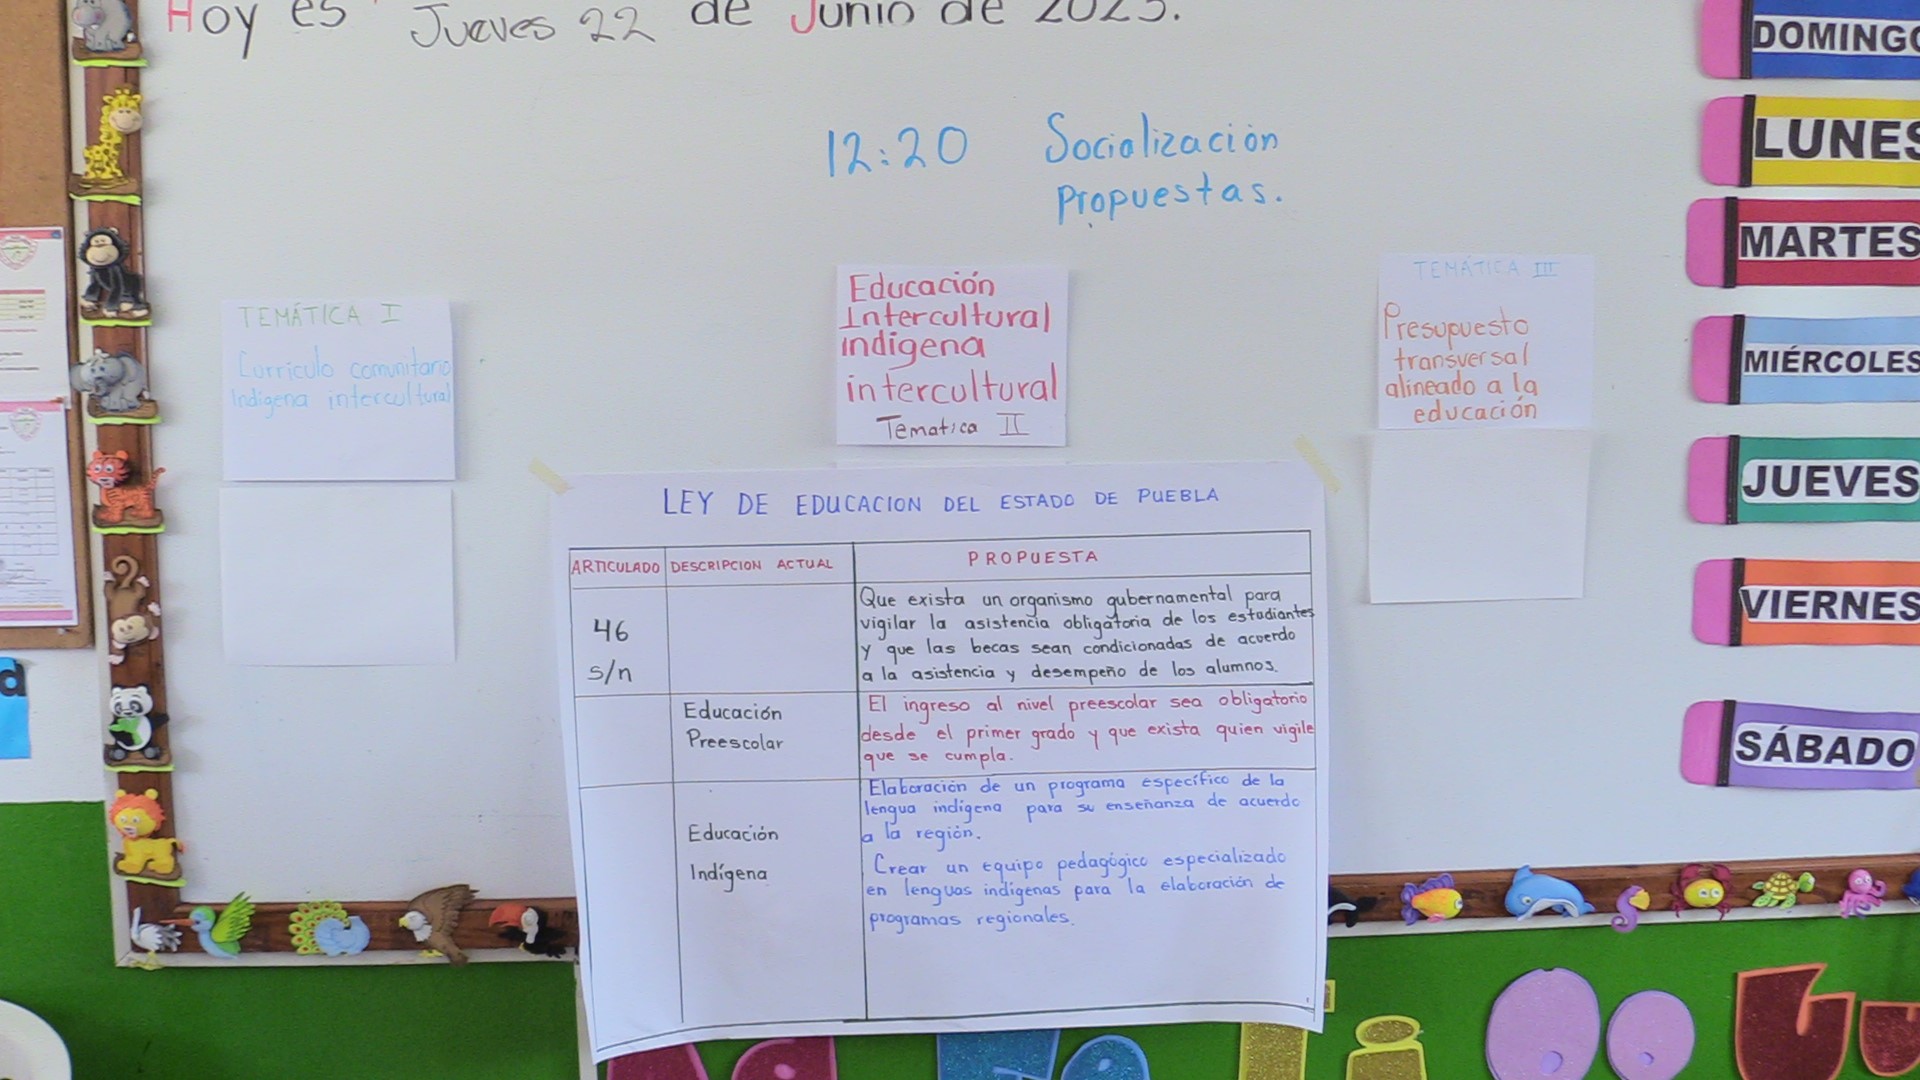 Hoy es Jueves 22 de Junio de 2023.
12:20 Socialización
propuestas.
TEMÁTICA I
Curriculo comunitario
Indígena intercultural
Educación
Intercultural
indigena
intercultural
Tematica II
TEMÁTICA III
Presupuesto
transversal
alineado a la
educación
LEY DE EDUCACION DEL ESTADO DE PUEBLA
ARTICULADO DESCRIPCION ACTUAL PROPUESTA
46
s/n
Que exista un organismo gubernamental para
vigilar la asistencia obligatoria de los estudiantes
y que las becas sean condicionadas de acuerdo
a la asistencia y desempeño de los alumnos.
Educación
Preescolar
El ingreso al nivel preescolar sea obligatorio
desde el primer grado y que exista quien vigile
que se cumpla.
Educación
Indígena
Elaboración de un programa específico de la
lengua indígena para su enseñanza de acuerdo
a la región.
Crear un equipo pedagógico especializado
en lenguas indígenas para la elaboración de
programas regionales.
DOMINGO
LUNES
MARTES
MIÉRCOLES
JUEVES
VIERNES
SÁBADO